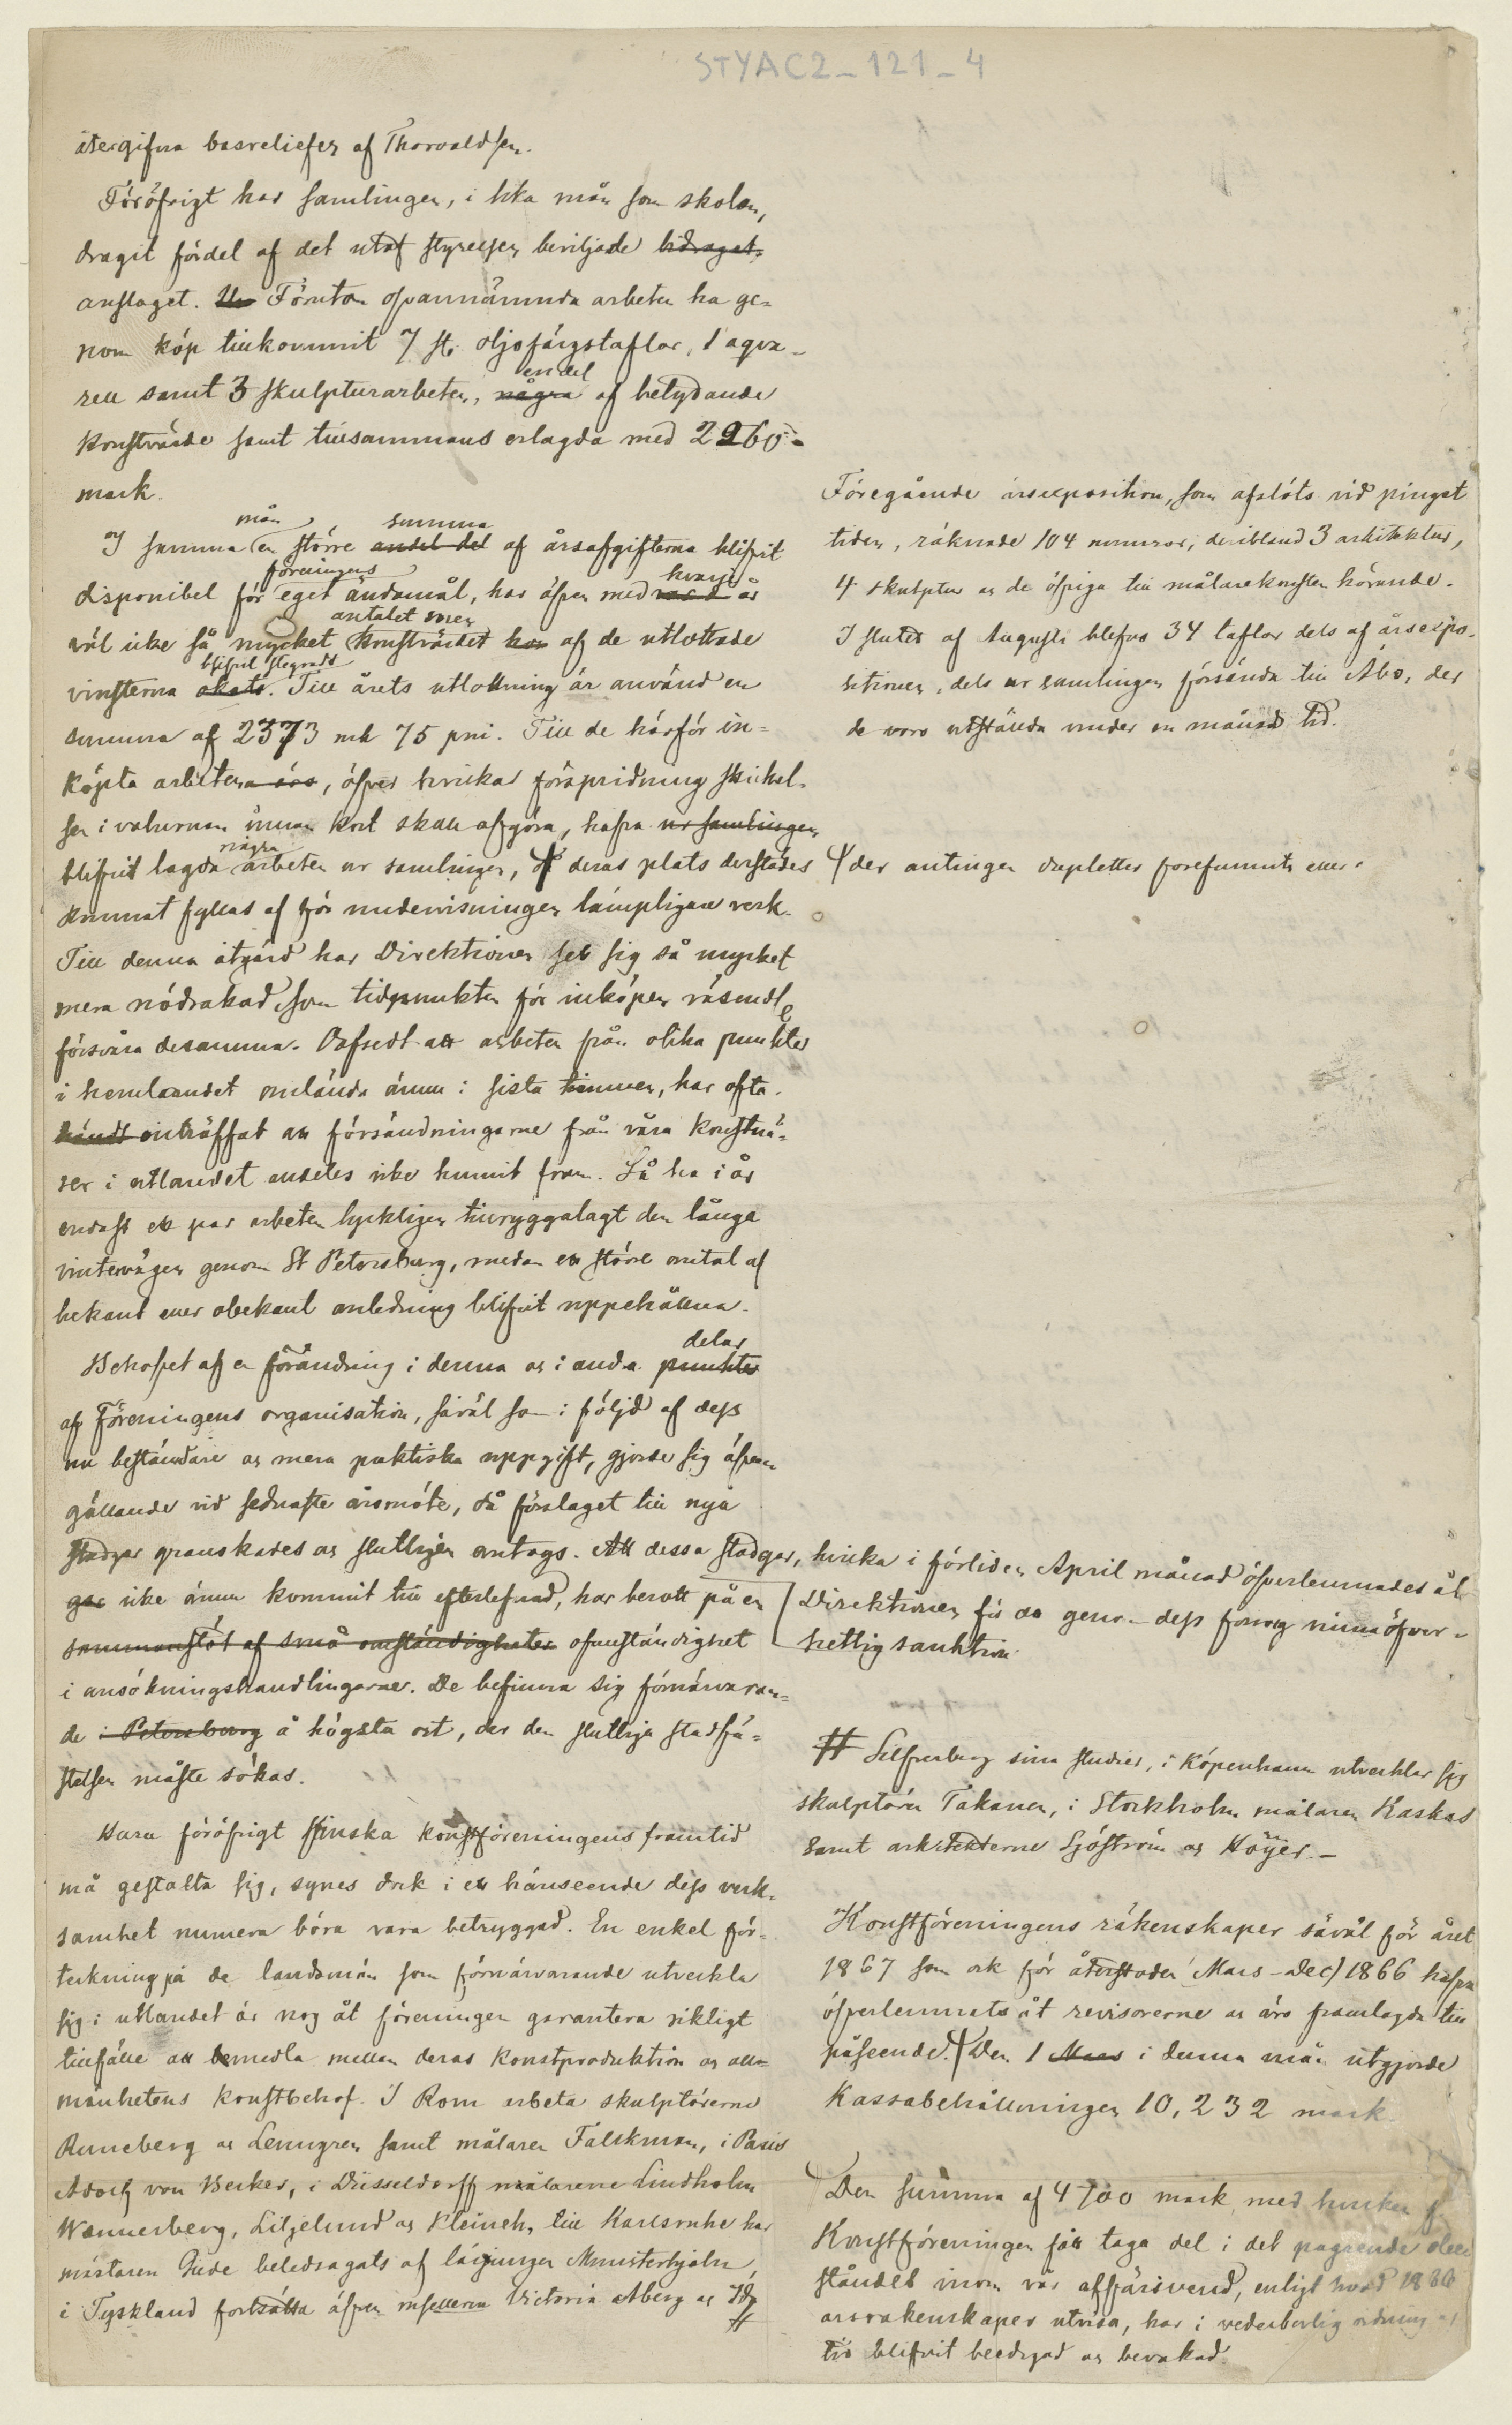 STYAC2_121_4
återgifna basreliefer af Thorvaldsen.
Föröfrigt har samlingen, i lika mån som skolan,
dragit fördel af det utaf styrelsen beviljade bidraget
anslaget. Förutom ofvannämnda arbeten ha ge-
nom köp tillkommit 7 st. oljefärgstaflor, 1 aqva-
endel
rell samt 3 skulpturarbeten, några af betydande
konstvärde samt tillsammans erlagda med 2260
mark.
mån summa
I samma en större andel del af årsafgifterna blifvit
föreningens hvarje
disponibel för eget ändamål, har äfven med år
antalet som
väl icke så mycket konstvärdet har af de utlottade
blifvit stegradt
vinsterna ökats. Till årets utlottning är använd en
summa af 2373 mk 75 pni. Till de härför in-
köpta arbetena, öfver hvilkas förspridning skickel-
sen i valurnan innan kort skall afgöra, hafva ur samlingen
några
blifvit lagda arbeten ur samlingen, deras plats derstädes
kunnat fyllas af för undervisningen lämpligare verk.
Till denna åtgärd har Direktionen sett sig så mycket
mera nödsakad, som tidpunkten för inköpen väsendtl
försvåra desamma. Oafsedt att arbeten från olika punkter
i hemlandet anlända ännu i sista timmen, har ofta
händt inträffat att försändningarne från våra konstnä-
rer i utlandet alldeles icke hunnit fram. Så ha i år
endast ett par arbeten lyckligen tillryggalagt den långa
vintervägen genom St Petersburg, medan ett större antal af
bekant eller obekant anledning blifvit uppehållna.
delar
Behofvet af en förändring i denna och i andra punkter
af Föreningens organisation, såväl som i följd af dess
nu beståndare och mera praktiska uppgift, gjorde sig äfven
gällande vid sednaste årsmöte, då förslaget till nya
stadgar granskades och slutligen antogs. Att dessa stadgar,
gar icke ännu kommit till efterlefnad, har berott på en
sammanstöt af små omständigheter omständighet
i ansökningshandlingarne. De befinna sig förnärvaran-
de i Petersburg å högsta ort, der den slutliga stadfä-
stelsen måste sökas.
Huru föröfrigt finska konstföreningens framtid
må gestalta sig, synes dock i ett hänseende dess verk-
samhet numera böra vara betryggad. En enkel för-
teckning på de landsmän som förnärvarande utveckla
sig i utlandet är nog åt föreningen garantera rikligt
tillfälle att bemedla mellan deras konstproduktion och all-
mänhetens konstbehof. I Rom arbeta skulptörerne
Runeberg och Lenngren samt målaren Falckman, i Paris
Adolf von Becker, i Düsseldorff målarene Lindholm
Wennerberg, Liljelund och Kleineh, till Karlsruhe har
mästaren Gude beledsagats af lärjungen Munsterhjelm,
i Tyskland fortsätta äfven msellerna Victoria Åberg och Ida
#
Föregående årsexposition, som afslöts vid pingst
tiden, räknade 104 nummror, deribland 3 arkitektur,
4 skulptur och de öfriga till målarekonsten hörande.
I slutet af Augusti blefvo 34 taflor dels af årsexpo-
sitionen, dels ur samlingen försända till Åbo, der
de voro utställda under en månads tid.
der antingen dupletter forefunnits eller
hvilka i förliden April månad öfverlemnades åt
Direktionen för att genom dess försorg vinna öfver-
hetlig sanktion
# Silfverberg sina studier, i Köpenhamn utvecklar sig
skulptören Takanen, i Stockholm målaren Kaskas
samt arkitekterne Sjöström och Höijer. —
Konstföreningens räkenskaper såväl för året
1867 som ock för återstoden (Mars–Dec) 1866 hafva
öfverlemnats åt revisorerne och äro framlagda till
påseende. Den 1 Mars i denna mån utgjorde
Kassabehållningen 10,232 mark.
Den summa af 4700 mark, med hvilken f
Konstföreningen får taga del i det pågående obe
ståndet inom vår affärsverld, enligt hvad 1866
årsräkenskaper utvisa, har i vederbörlig ordning och
tid blifvit beedigad och bevakad.